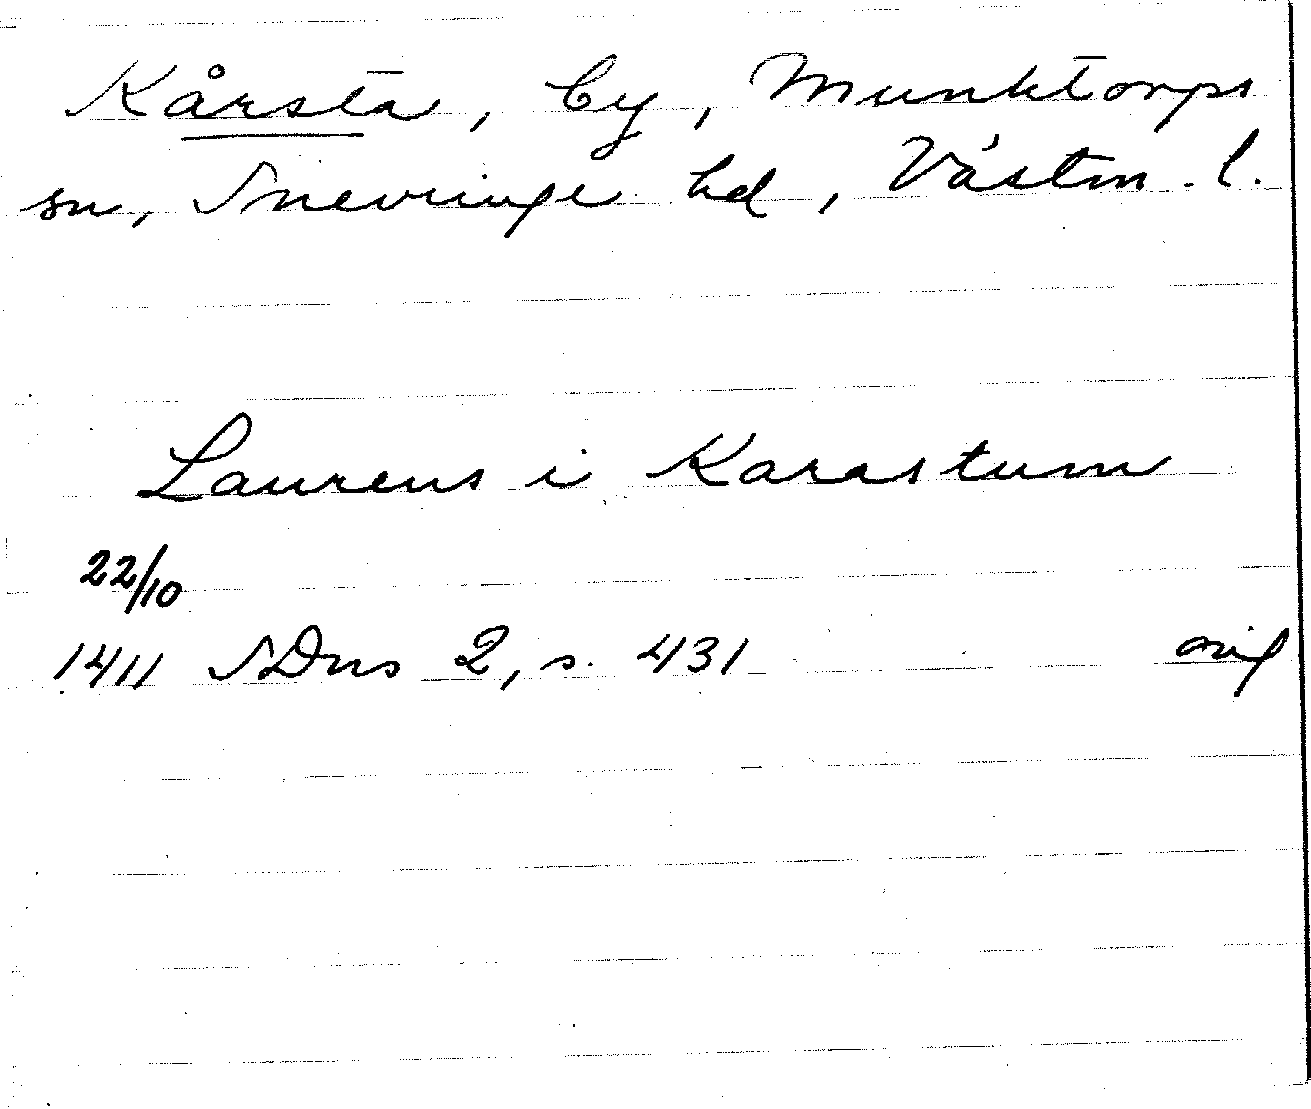 Kårsta, by, Munktorps
sn, Snevringe hd, Västm. l.
Laurens i Karastum
22/10
1411 SDns 2, s. 431 orig